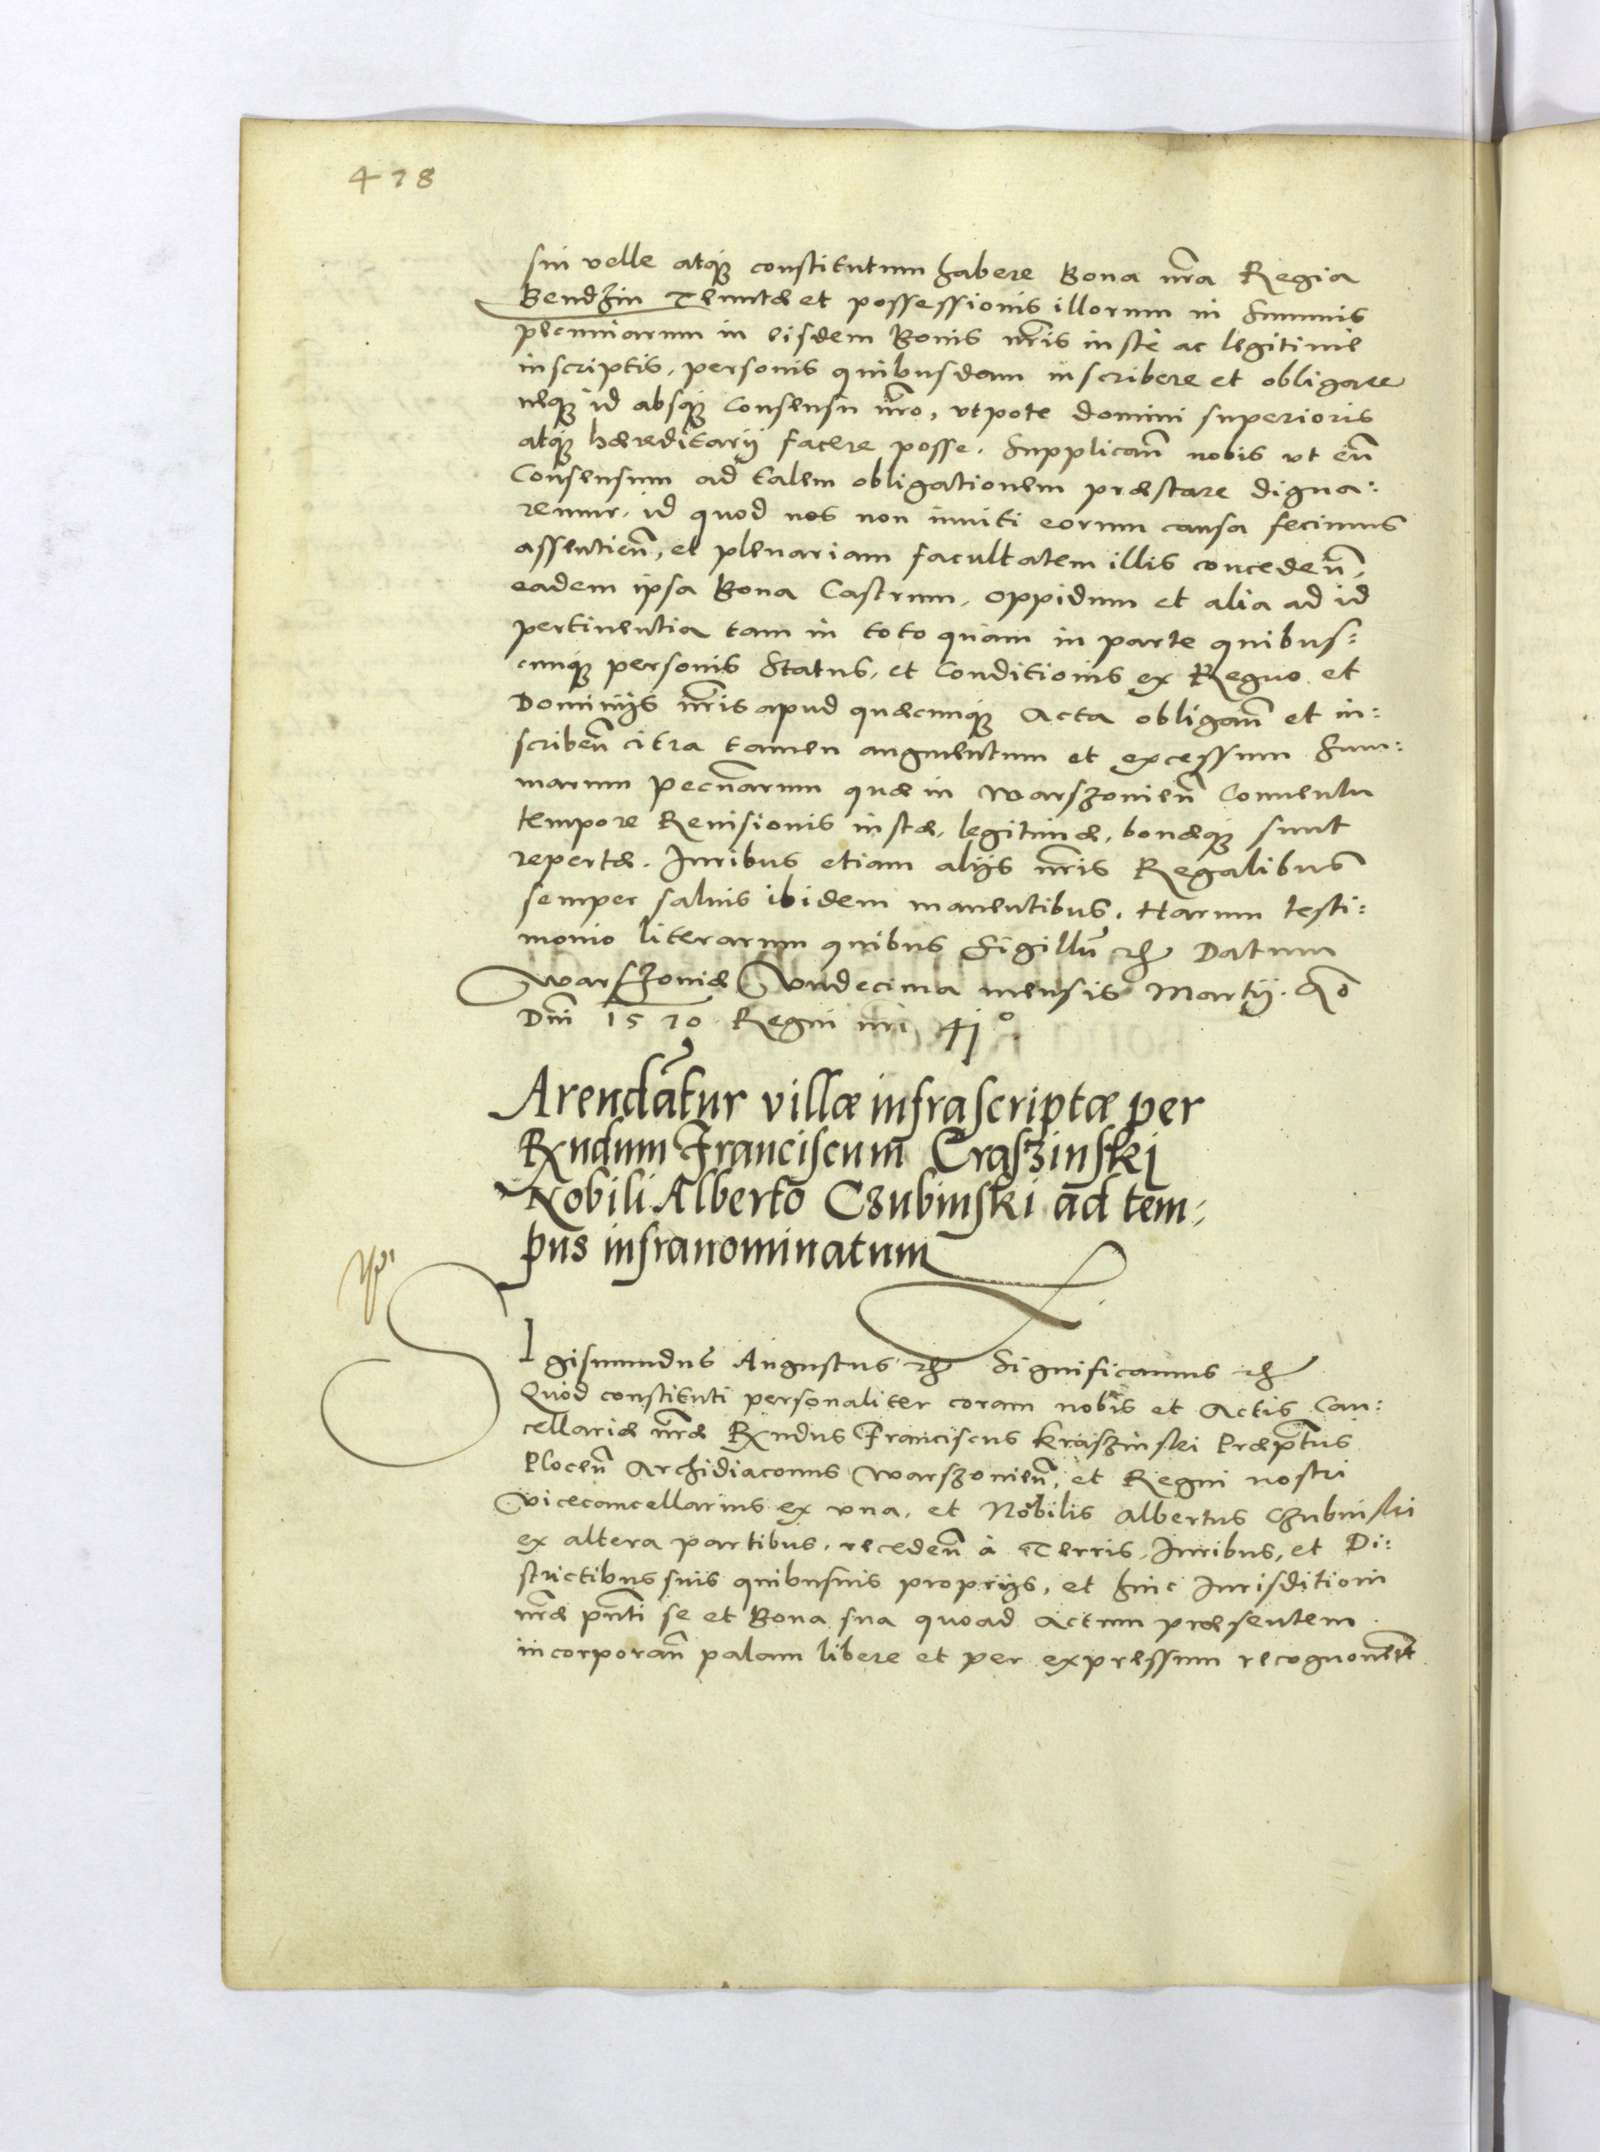 478
sin velle atq₃ constitutum habere Bona nr̃a Regia
Bendzin Tenutæ et possessionis illorum in Summis
pecuniarum in eisdem Bonis nr̃is iuste ac legitime
inscriptis, personis quibusdam inscribere et obligare
neq₃ id absq₃ Consensu nr̃o, utpote domini superioris
atq₃ hæreditarij facere posse. Supplicañ nobis ut eũ
Consensum ad talem obligationem præstare digna:
remur, id quod nos non inuiti eorum causa fecimus
assentieñ, et plenariam facultatem illis concedeñ,
eadem ipsa Bona Castrum, oppidum et alia ad id
pertinentia tam in toto quàm in parte quibus:
cunq₃ personis Status, et Conditionis ex Regno et
Dominijs nr̃is apud quæcunq₃ Acta obligañ et in:
scribeñ citra tamen augmentum et excessum Sum:
marum pecũarum quæ in Warszouieñ Conuentu
tempore Reuisionis iustæ, legitimæ, bonæq₃ sunt
repertæ. Iuribus etiam alijs nr̃is Regalibus
semper saluis ibidem manentibus. Harum testi:
monio literarum quibus Sigillũ etc Datum
Warszouiæ Vndecima mensis Martij. Aõ
Dnĩ 1570 Regni nr̃i 41°
Arendãtur villæ infrascriptæ per
Rx̃ndum Franciscum Craszinski
Nobili Alberto Czubinski ad tem:
pus infranominatum
SIgismundus Augustus etc Significamus etc
Quòd constituti personaliter coram nobis et Actis Can:
cellariæ nr̃æ Rx̃ndus Franciscus Kraszinski Præp̃tus
Ploceñ Archidiaconus Warszouieñ, et Regni nostri
Vicecancellarius ex una, et Nobilis Albertus Czubinski
ex altera partibus, recedeñ à Terris, Iuribus, et Di:
strictibus suis quibusuis proprijs, et huic Iurisditioni
nr̃æ pñti se et Bona sua quoad Actum præsentem
incorporañ palàm libere et per expressum recognouerũt